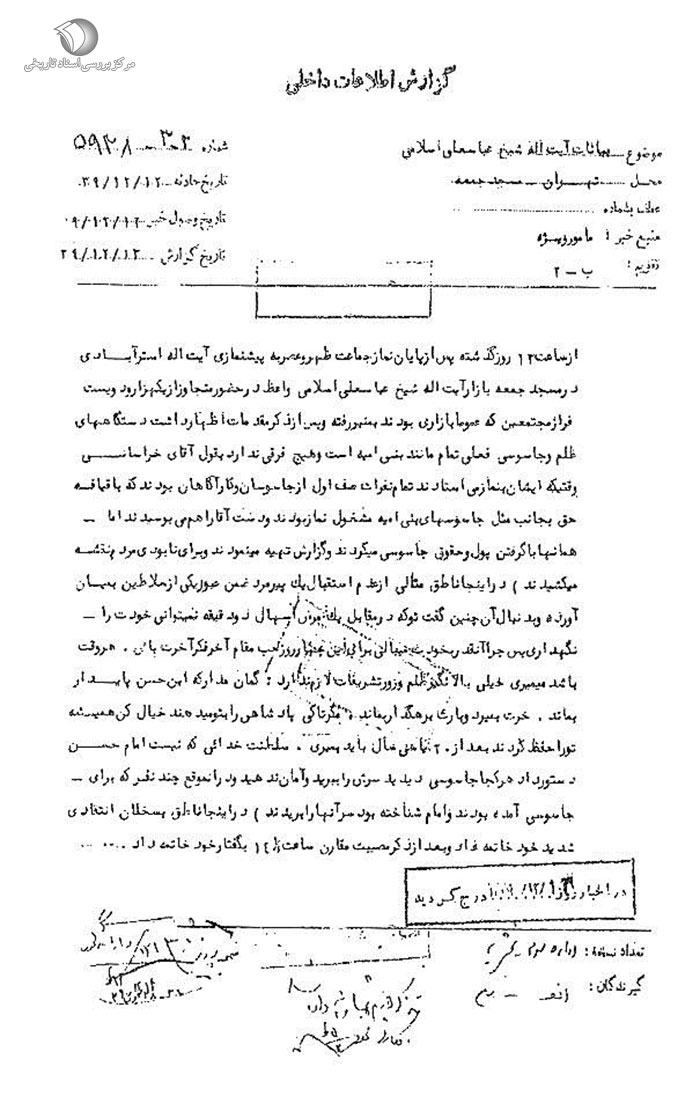 مرکز بررسی اسناد تاریخی
گزارش اطلاعات داخلی
موضوع بیانات آیت اله شیخ عباسعلی اسلامی
شماره ۵۹۳۸
محل تهران ـ مسجد جمعه
تاریخ حادثه ۳۹/۱۲/۱۲
عطف بشماره
تاریخ وصول خبر
منبع خبر : مامور ویژه
تاریخ گزارش
تقویم : ب ـ ۲
از ساعت ۱۲ روز گذشته پس از پایان نماز جماعت ظهر و عصر به پیشنمازی آیت اله استرآبادی
در مسجد جمعه بازار آیت اله شیخ عباسعلی اسلامی واعظ در حضور متجاوز از یکهزار و دویست
نفر از مجتمعین که عموما بازاری بودند بمنبر رفته و پس از ذکر مقدمات اظهار داشت دستگاههای
ظلم و جاسوسی فعلی تمام مانند بنی امیه است و هیچ فرقی ندارد بقول آقای خراسانی
وقتیکه ایشان بنماز می استادند تمام نفرات صف اول از جاسوسان و کارآگاهان بودند که با قیافه
حق بجانب مثل جاسوسهای بنی امیه مشغول نماز بودند و دست آقا را هم می بوسیدند اما ـ
همانها با گرفتن پول و حقوق جاسوسی میکردند و گزارش تهیه مینمودند و برای نابودی مردم نقشه
میکشیدند ) در اینجا ناطق مثالی از عدم استقبال یك پیرمرد ضمن عبور یکی از سلاطین بمیان
آورده و بدنبال آن چنین گفت توکه در مقابل یك مرض اسهال دو دقیقه نمیتوانی خودت را ـ
نگهداری پس چرا آنقدر بخودت میبالی برای این چهار روز حب مقام آخر فکر آخرت باش . هروقت
باشد میمیری خیلی بالا نگیر ظلم و زور تشریفات لازم ندارد : گمان مدار که ابن حسن پایدار
بماند . خرت بمیرد و بارت برهگذار بماند . مگر تاکی پادشاهی را بتو میدهند خیال کن همیشه
تو را حفظ کردند بعد از ۲۰ یا سی سال باید بمیری . سلطنت خدائی که نیست امام حسن
دستور داد هر کجا جاسوسی دیدید سرش را ببرید و امان ندهید و در آنموقع چند نفر که برای ـ
جاسوسی آمده بودند و امام شناخته بود سر آنها را بریدند ) در اینجا ناطق بسخنان انتقادی
شدید خود خاتمه داد و بعد از ذکر مصیبت مقارن ساعت بگفتار خود خاتمه داد
در اخبار روز درج گردید
تعداد نسخه :
گیرندگان :